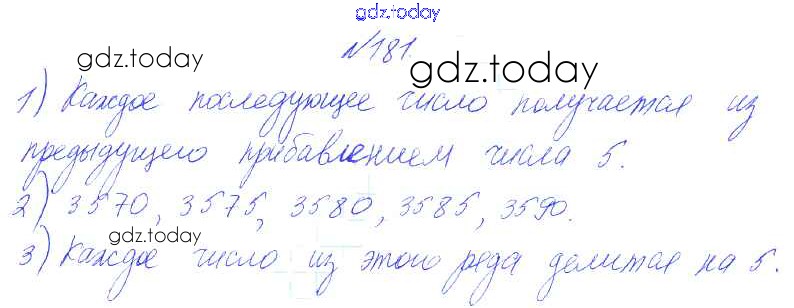 gdz.today
№181.
gdz.today
gdz.today
1) Каждое последующее число получается из
предыдущего прибавлением числа 5.
2) 3570, 3575, 3580, 3585, 3590.
gdz.today
3) Каждое число из этого ряда делится на 5.